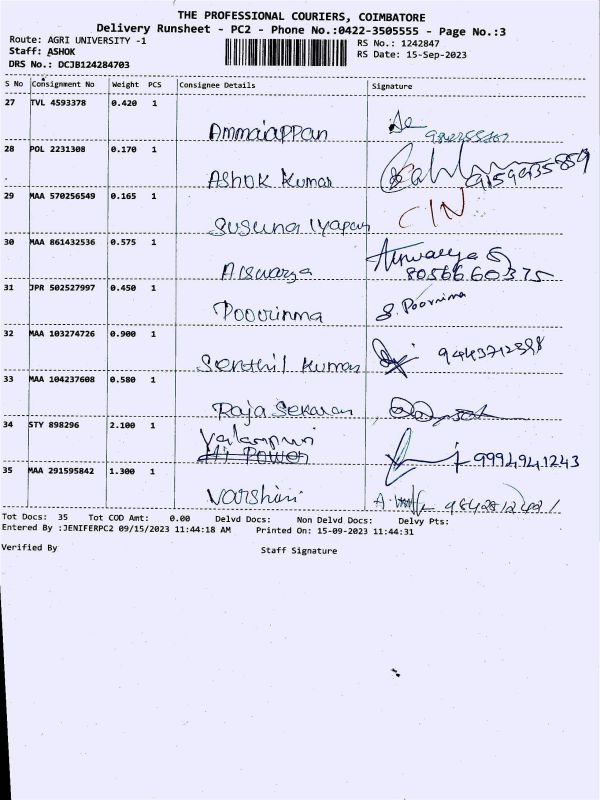 THE PROFESSIONAL COURIERS, COIMBATORE
Delivery Runsheet - PC2 - Phone No.:0422-3505555 - Page No.:3
Route: AGRI UNIVERSITY -1 RS No.: 1242847
Staff: ASHOK RS Date: 15-Sep-2023
DRS No.: DCJB124284703
S No Consignment No Weight PCS Consignee Details Signature
27 TVL 4593378 0.420 1
Ammaiappan
28 POL 2231308 0.170 1
Ashok Kumar 9159435859
29 MAA 570256549 0.165 1
Susuna Iyapan CIN
30 MAA 861432536 0.575 1
Aiswarya Aiswarya S
8056660375
31 JPR 502527997 0.450 1
Poorinma S. Poornima
32 MAA 103274726 0.900 1
Senthil Kumar 9443712398
33 MAA 104237608 0.580 1
Raja Sekaran
34 STY 898296 2.100 1
Hi Power 9994941243
35 MAA 291595842 1.300 1
Varshini
Tot Docs: 35 Tot COD Amt: 0.00 Delvd Docs: Non Delvd Docs: Delvy Pts:
Entered By :JENIFERPC2 09/15/2023 11:44:18 AM Printed On: 15-09-2023 11:44:31
Verified By Staff Signature